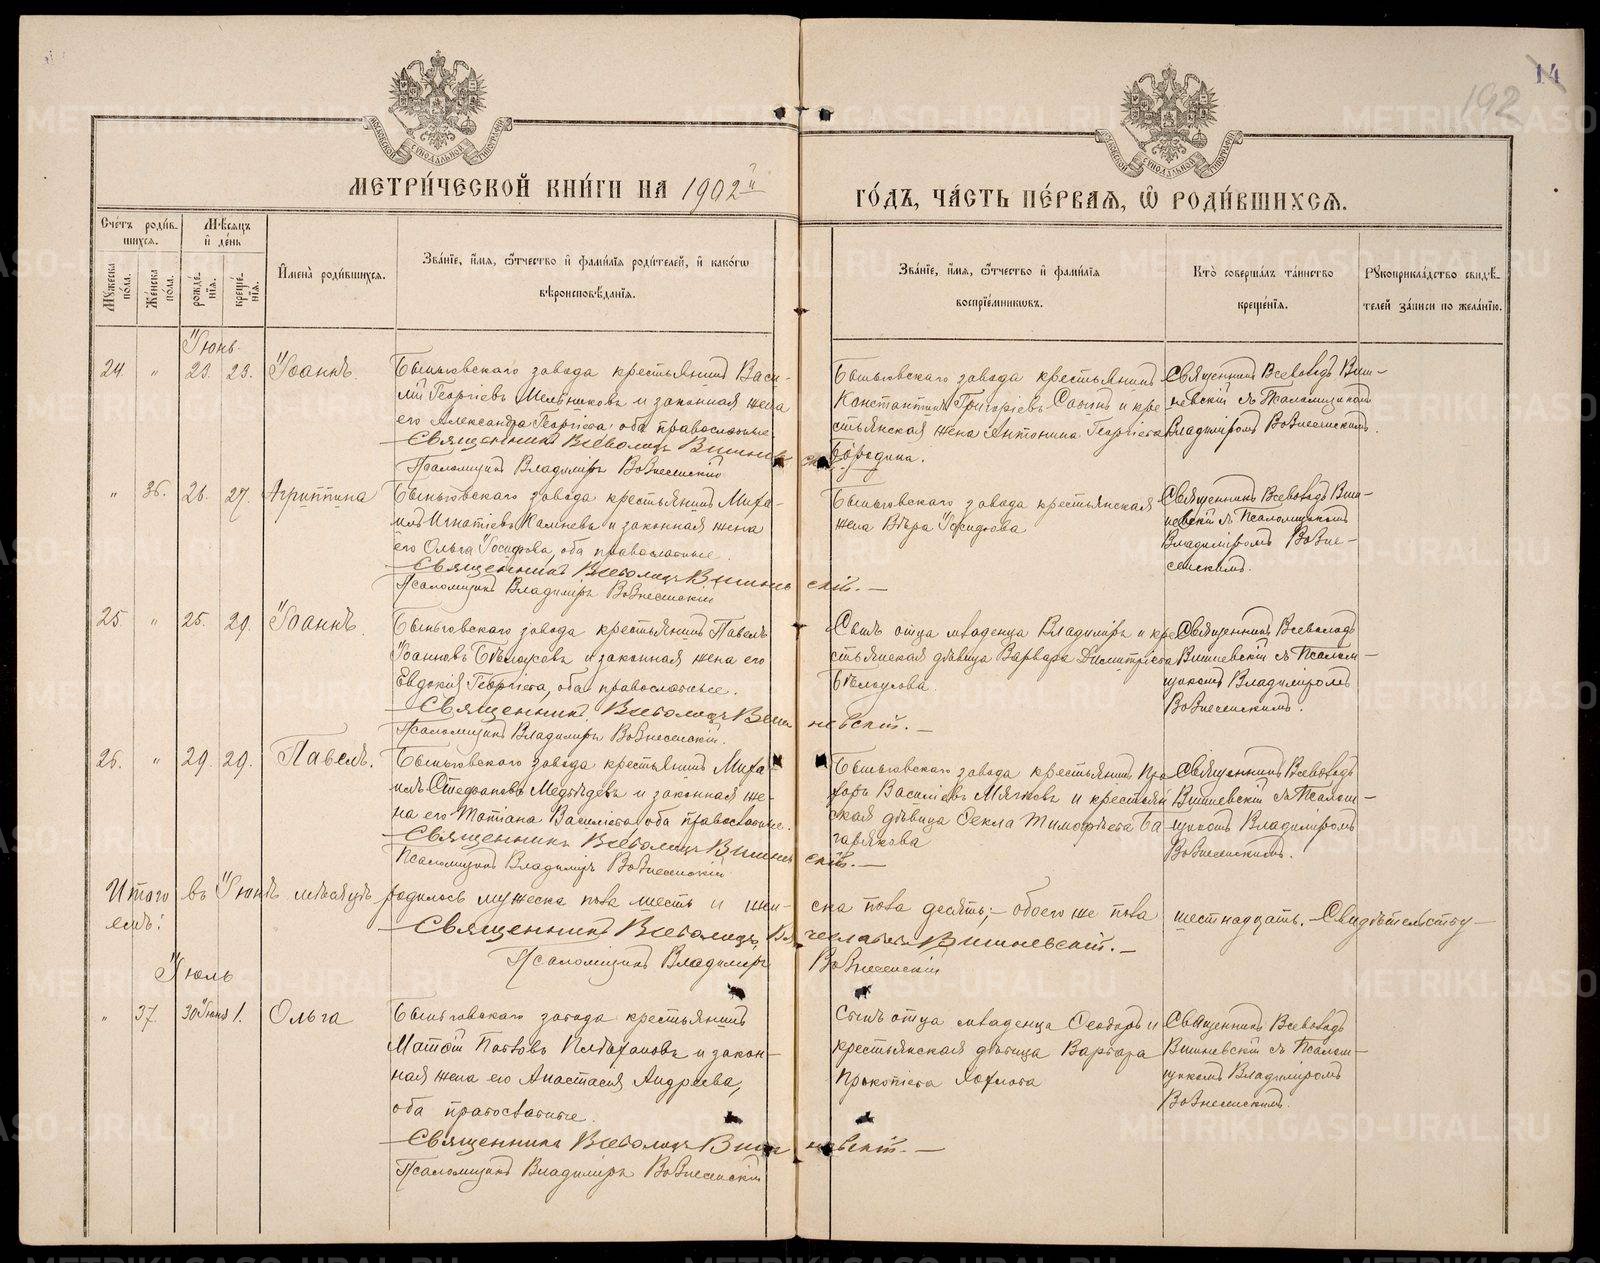 14
192
МОСКОВСКОЙ СѴНОДАЛЬНОЙ ТИПОГРАФІИ
МОСКОВСКОЙ СѴНОДАЛЬНОЙ ТИПОГРАФІИ
МЕТРИ́ЧЕСКОЙ КНИ́ГИ НА 1902й
ГО́ДЪ, ЧА́СТЬ ПЕ́РВАѦ, Ѡ҆ РОДИ́ВШИХСѦ.
Сче́тъ роди́в-
шихсѧ.
Мꙋ́жеска по́ла.
Же́нска по́ла.
Мѣ́сѧцъ
и҆ де́нь
рожде́-
нїѧ.
креще́-
нїѧ.
И҆мена̀ роди́вшихсѧ.
Зва́нїе, и҆́мѧ, ѻ҆́тчество и҆ фами́лїѧ роди́телей, и҆ како́гѡ
вѣроисповѣ́данїѧ.
Зва́нїе, и҆́мѧ, ѻ҆́тчество и҆ фами́лїѧ
воспрїе́мникѡвъ.
Кто̀ соверша́лъ та́инство
креще́нїѧ.
Рꙋкоприкла́дство свидѣ́-
телей за́писи по жела́нїю.
Іюнь.
24. " 23. 23. Іоаннъ.
Быньговскаго завода крестьянинъ Васи-
лій Георгіевъ Мельниковъ и законная жена
его Александра Георгіева, оба православные
Священникъ Всеволодъ Вишневскій.
Псаломщикъ Владиміръ Вознесенскій
Быньговскаго завода крестьянинъ
Константинъ Григоріевъ и кре-
стьянская жена Антонина Георгіева
Бородина.
Священникъ Всеволодъ Виш-
невскій съ Псаломщикомъ
Владиміромъ Вознесенскимъ.
" 36. 26. 27. Агриппина
Быньговскаго завода крестьянинъ Миха-
илъ Игнатіевъ и законная жена
его Ольга Іосифова, оба православные.
Священникъ Всеволодъ Вишневскій.
Псаломщикъ Владиміръ Вознесенскій
Быньговскаго завода крестьянская
жена Вѣра
Священникъ Всеволодъ Виш-
невскій съ Псаломщикомъ
Владиміромъ Возне-
сенскимъ.
25 " 25. 29. Іоаннъ.
Быньговскаго завода крестьянинъ Павелъ
Іоанновъ Бѣлоусовъ и законная жена его
Евдокія Георгіева, оба православные.
Священникъ Всеволодъ Вишневскій.
Псаломщикъ Владиміръ Вознесенскій.
Сынъ отца младенца Владиміръ и кре-
стьянская дѣвица Варвара Димитріева
Бѣлоусова.
Священникъ Всеволодъ
Вишневскій съ Псалом-
щикомъ Владиміромъ
Вознесенскимъ.
26. " 29. 29. Павелъ.
Быньговскаго завода крестьянинъ Миха-
илъ Стефановъ Медвѣдевъ и законная же-
на его Татіана Васильева, оба православные.
Священникъ Всеволодъ Вишневскій.
Псаломщикъ Владиміръ Вознесенскій
Быньговскаго завода крестьянинъ Про-
хоръ Василіевъ Мягковъ и крестьян-
ская дѣвица Ѳекла Тимоѳеева Ба-
Священникъ Всеволодъ
Вишневскій съ Псалом-
щикомъ Владиміромъ
Вознесенскимъ.
Итого въ Іюнѣ мѣсяцѣ родилось мужеска пола шесть и жен-ска пола десять;- обоего же пола шестнадцать. Свидѣтельству-
емъ:
Священникъ Всеволодъ Вячеславовъ Вишневскій.
Псаломщикъ Владиміръ Вознесенскій
Іюль
" 37. 30 Іюня 1. Ольга
Быньговскаго завода крестьянинъ
Матѳій Павловъ и закон-
ная жена его Анастасія Андреева,
оба православные.
Священникъ Всеволодъ Вишневскій.
Псаломщикъ Владиміръ Вознесенскій
Сынъ отца младенца Ѳеодоръ и
крестьянская дѣвица Варвара
Прокопіева
Священникъ Всеволодъ
Вишневскій съ Псалом-
щикомъ Владиміромъ
Вознесенскимъ.
METRIKI.GASO-URAL.RU